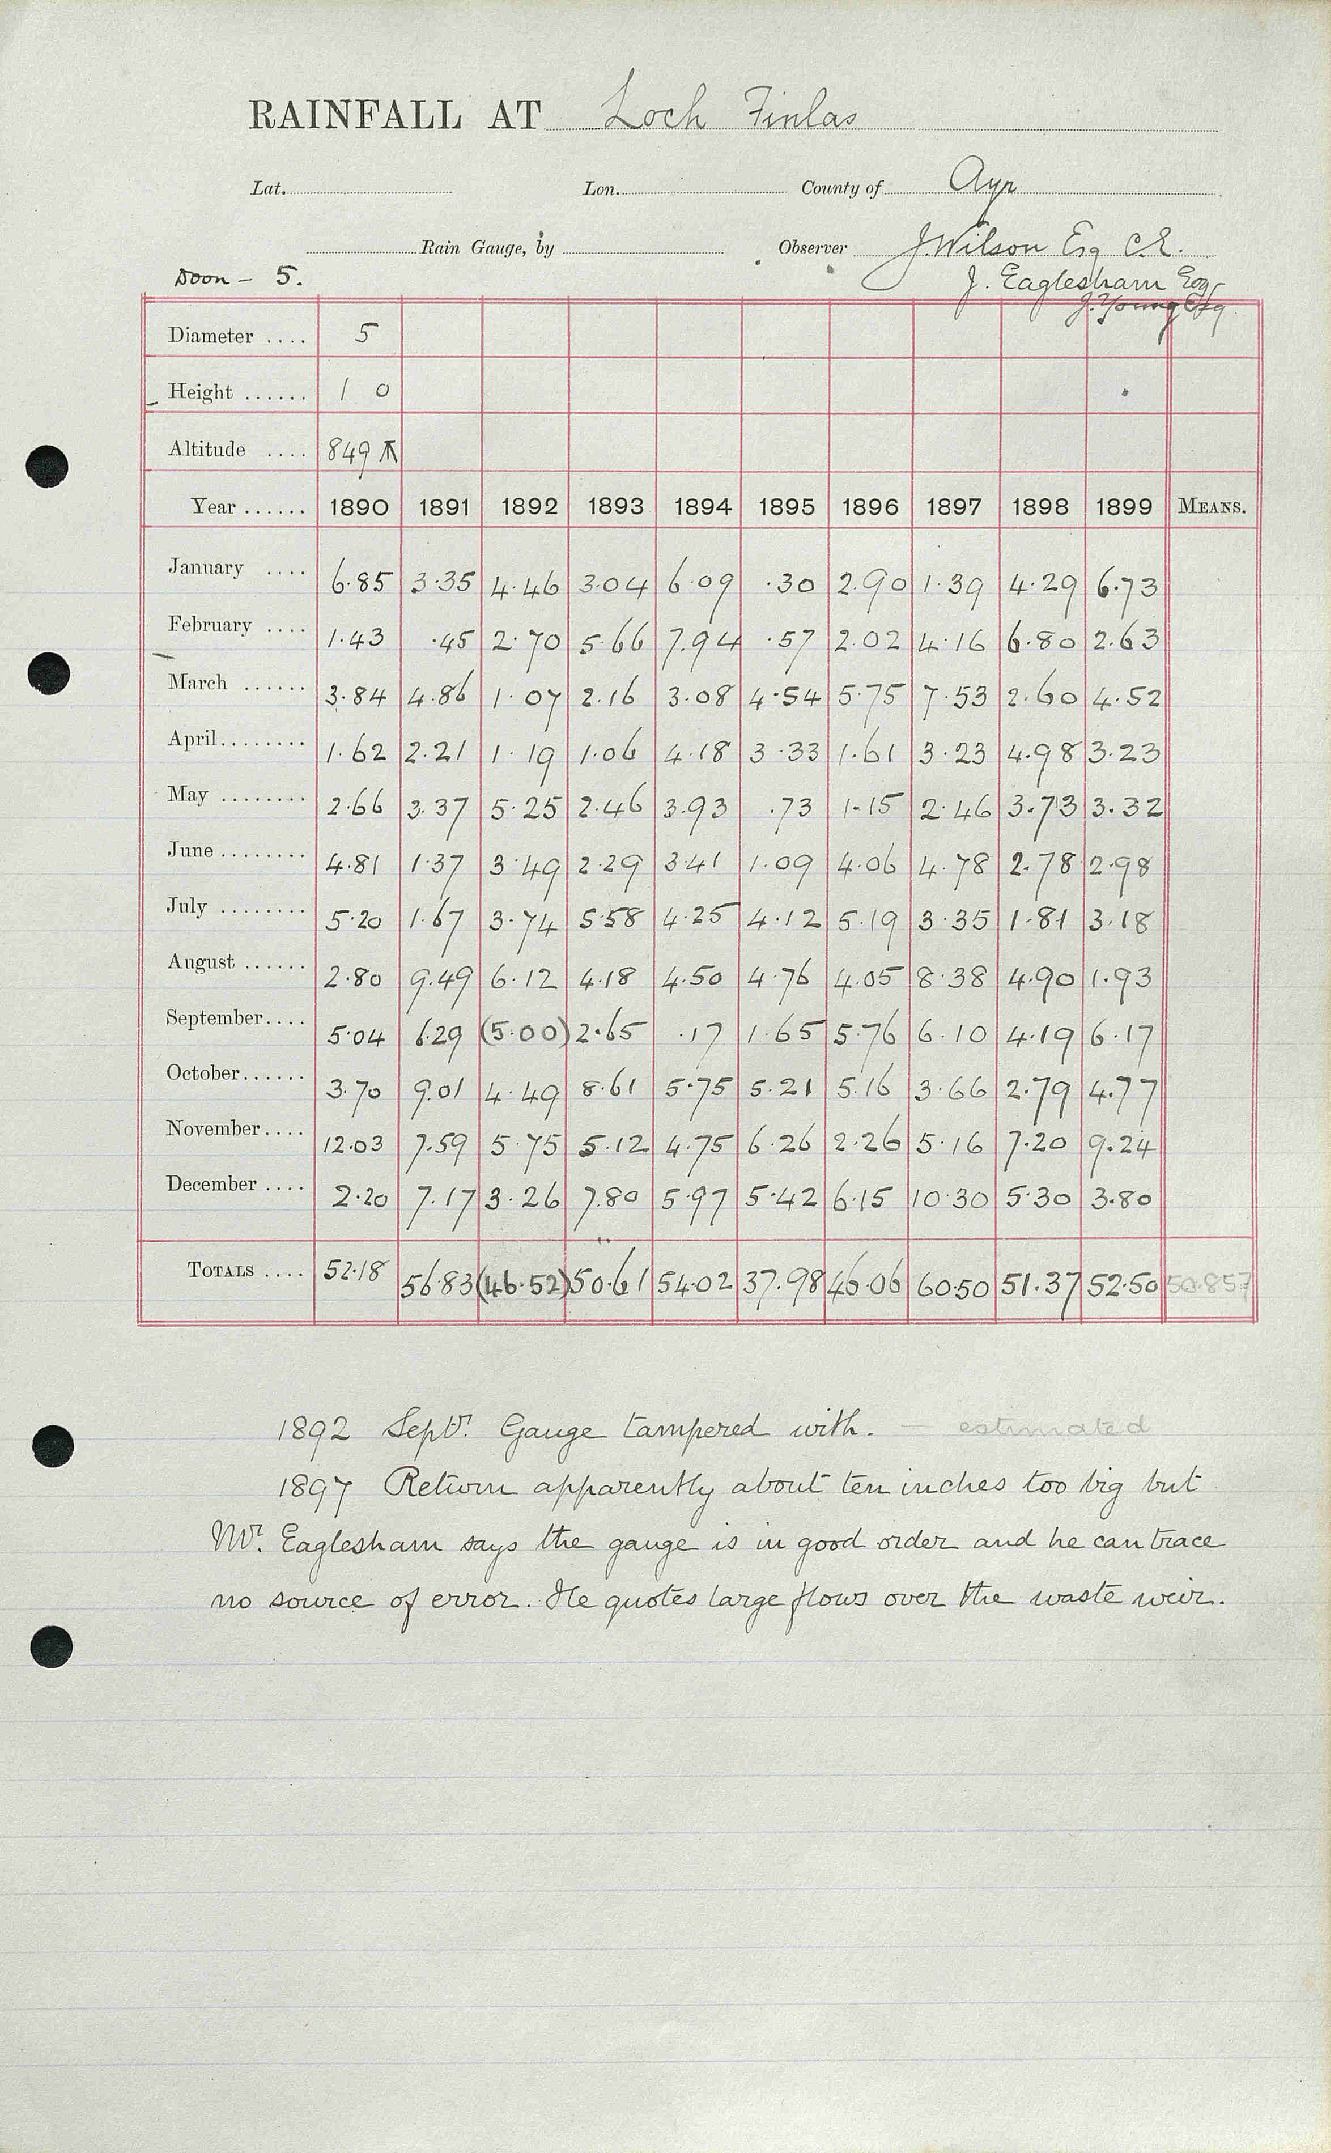 RAINFALL AT Loch Finlas
Lat. Lon. County of Ayr
Rain Gauge, by Observer J. Wilson Esq C.E.
Doon - 5. J. Eaglesham Esq
J. Young Esq
Diameter .... 5
Height ...... 1 0
Altitude .... 849
Year ...... 1890 1891 1892 1893 1894 1895 1896 1897 1898 1899 MEANS.
January .... 6.85 3.35 4.46 3.04 6.09 .30 2.90 1.39 4.29 6.73
February .... 1.43 .45 2.70 5.66 7.94 .57 2.02 4.16 6.80 2.63
March ...... 3.84 4.86 1.07 2.16 3.08 4.54 5.75 7.53 2.60 4.52
April........ 1.62 2.21 1.19 1.06 4.18 3.33 1.61 3.23 4.98 3.23
May ........ 2.66 3.37 5.25 2.46 3.93 .73 1.15 2.46 3.73 3.32
June ........ 4.81 1.37 3.49 2.29 3.41 1.09 4.06 4.78 2.78 2.98
July ........ 5.20 1.67 3.74 5.58 4.25 4.12 5.19 3.35 1.81 3.18
August ...... 2.80 9.49 6.12 4.18 4.50 4.76 4.05 8.38 4.90 1.93
September.... 5.04 6.29 (5.00) 2.65 .17 1.65 5.76 6.10 4.19 6.17
October...... 3.70 9.01 4.49 8.61 5.75 5.21 5.16 3.66 2.79 4.77
November.... 12.03 7.59 5.75 5.12 4.75 6.26 2.26 5.16 7.20 9.24
December .... 2.20 7.17 3.26 7.80 5.97 5.42 6.15 10.30 5.30 3.80
TOTALS .... 52.18 56.83 (46.52) 50.61 54.02 37.98 46.06 60.50 51.37 52.50 50.857
1892 Septr. Gauge tampered with. — estimated
1897 Return apparently about ten inches too big but
Mr. Eaglesham says the gauge is in good order and he can trace
no source of error. He quotes large flows over the waste weir.